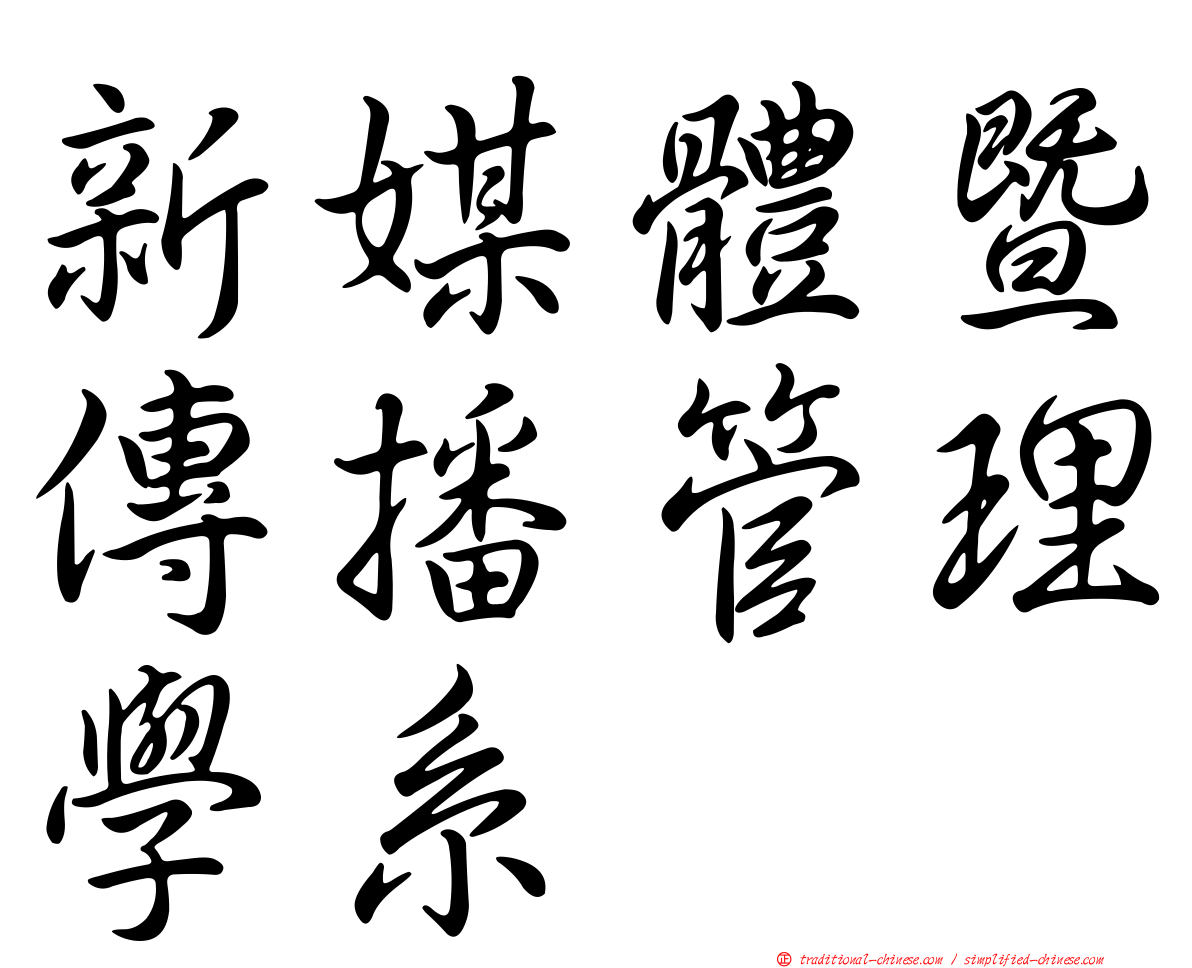 新媒體暨
傳播管理
學系
正 traditional-chinese.com / simplified-chinese.com